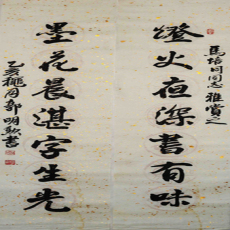 馬培同同志雅賞之
燈火夜深書有味
墨花晨湛字生光
乙亥桃月郭明書